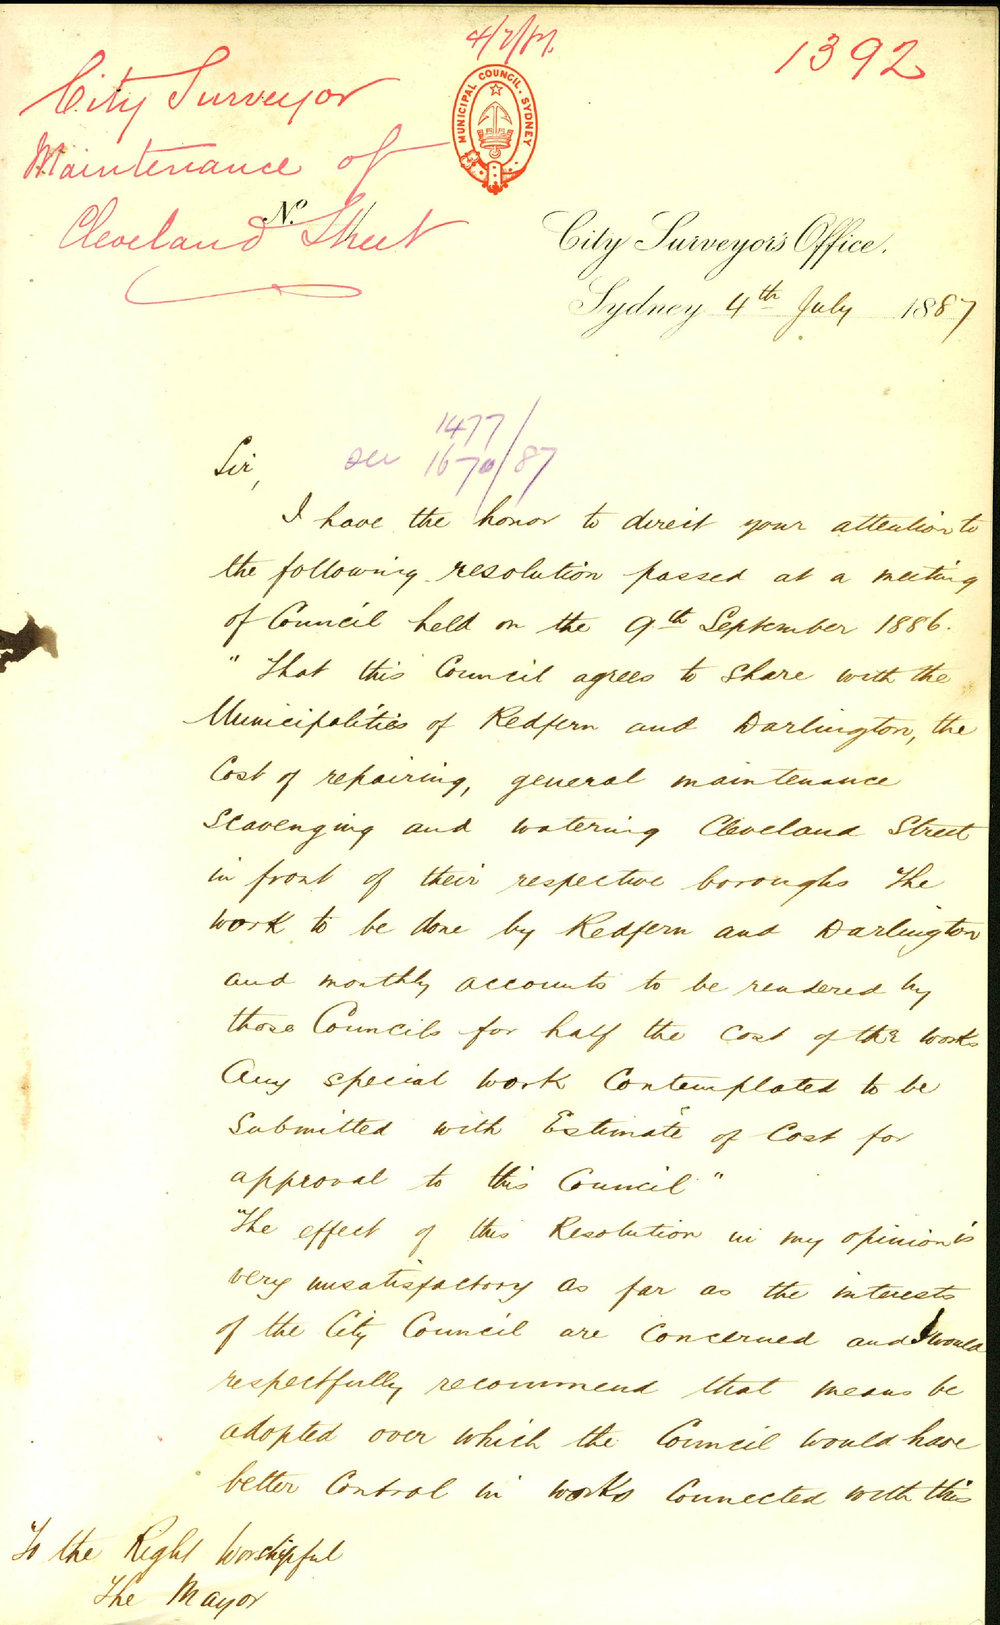 4/7/87.
1392
City Surveyor
Maintenance of
Cleveland Street
MUNICIPAL COUNCIL. SYDNEY
No.
City Surveyor's Office.
Sydney 4th July 1887
1477/
see 1670/87
Sir,
I have the honor to direct your attention to
the following resolution passed at a meeting
of Council held on the 9th September 1886.
"That this Council agrees to share with the
Municipalities of Redfern and Darlington, the
Cost of repairing, general maintenance
Scavenging and watering Cleveland Street
in front of their respective boroughs The
work to be done by Redfern and Darlington
and monthly accounts to be rendered by
those Councils for half the cost of the works
Any special work Contemplated to be
Submitted with Estimate of Cost for
approval to this Council"
"The effect of this Resolution in my opinion is
very unsatisfactory as far as the interests
of the City Council are Concerned and I would
respectfully recommend that means be
adopted over which the Council would have
better Control in works Connected with this
To the Right Worshipful
The Mayor